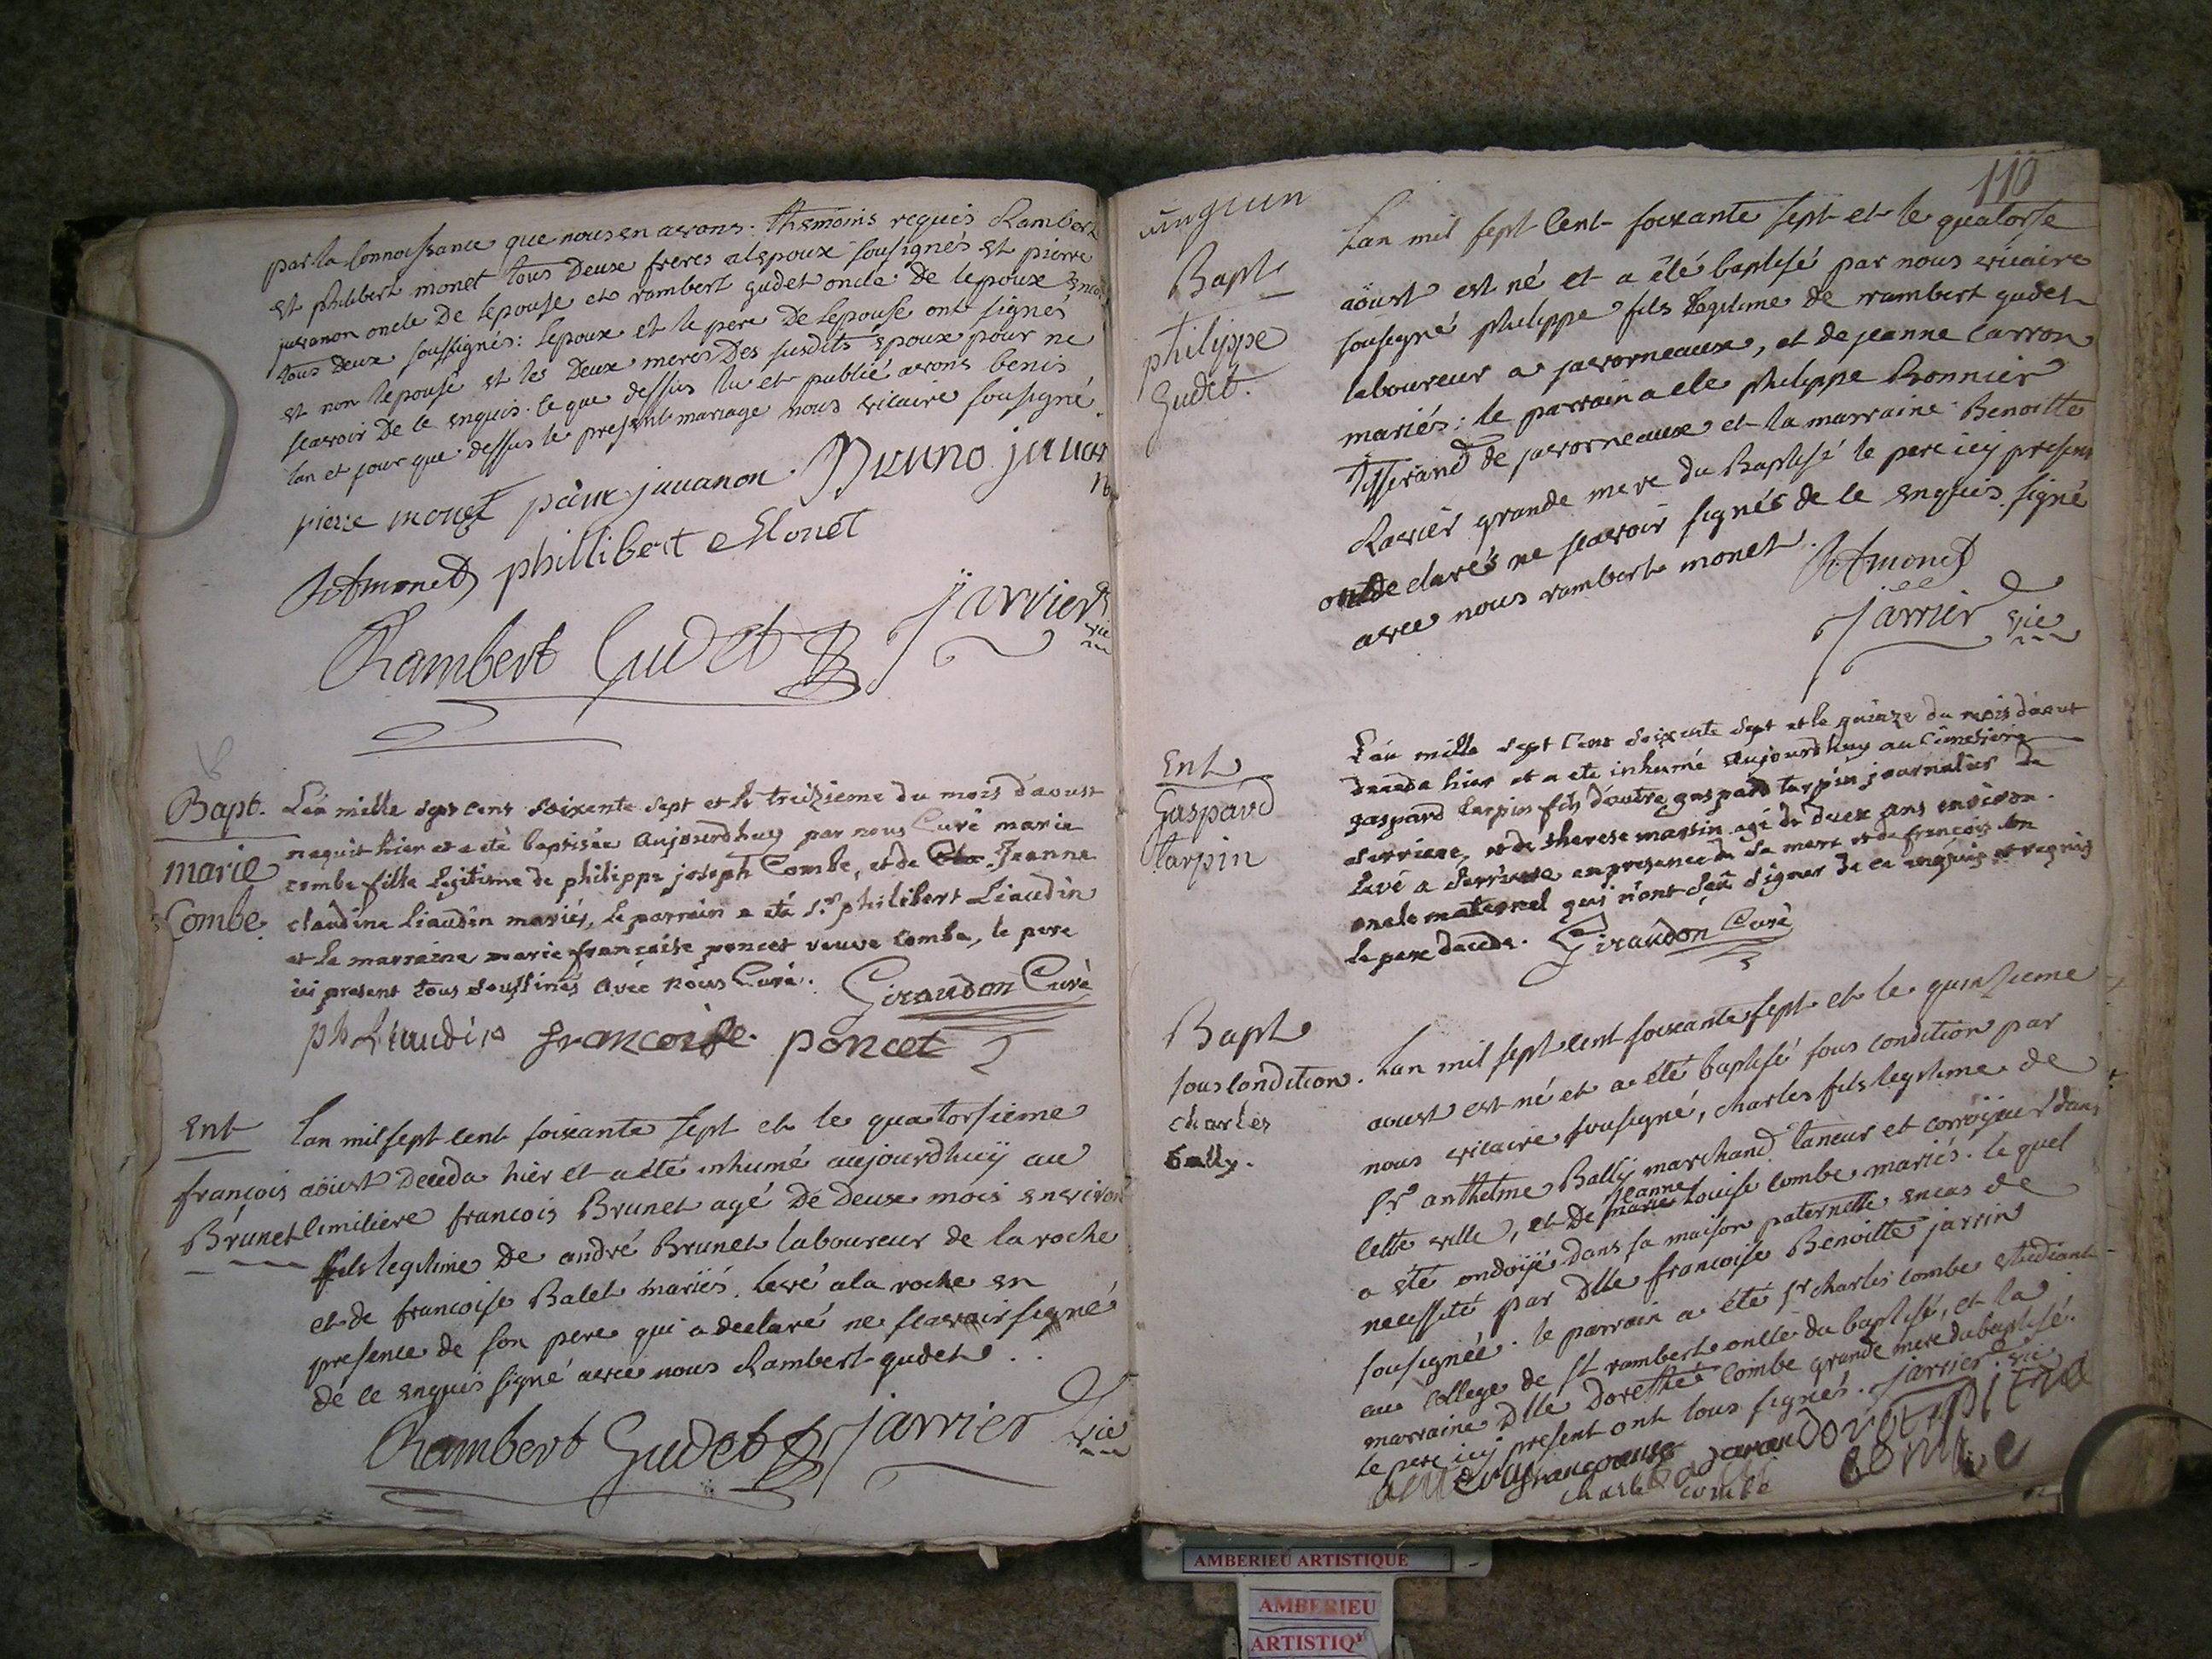 par la connoissance que nous en avons. Thémoins requis Rambert
et philibert monet tous Deux freres alepoux sousignés et pierre
juvanon oncle De lepouse et rambert gudet oncle De lepoux
tous deux soussignés: lepoux et le pere De lepouse ont signés
et non lepouse et les Deux meres Des susdits epoux pour ne
scavoir De ce enquis. Ce que dessus lu et publié avons benis
lan et jour que dessus le present mariage nous vicaire sousigné.
pierre monet juvanon Bruno juvan
Rt monet phillibert Monet
Rambert Gudet jarrier vic
Bapt.
marie
Combe.
L'an mille sept cens soixente sept et le treizieme du mois d'aoust
naquit hier et a eté baptisée aujourdhuy par nous Curé marie
combe fille legitime de philippe joseph Combe, et de Jeanne
claudine Liaudin mariés, le parrain a eté sr philibert Liaudin
et la marraine marie francoise poncet veuve Combe, le pere
ici present tous soussinés avec nous Curé. Giraudon Curé
ph Liaudin francoise poncet
Ent
françois
Brunet
Lan mil sept cent soixante sept et le quatorsieme
aöust Deceda hier et a été inhumé aujourdhuÿ au
Cimitiere francois Brunet agé De Deux mois environ
fils legitime De andré Brunet laboureur de la roche
et de francoise Balet mariés. levé a la roche en
presence de son pere qui a declaré ne scavoir signé
de ce enquis signé avec nous Rambert gudet..
Rambert Gudet jarrier vic
110
Bapt
philippe
Gudet.
Lan mil sept Cent soixante sept et le quatorse
aöust est né et a été baptisé par nous vicaire
sousigné philippe fils legitime de rambert gudet
laboureur a javorneaux, et de jeanne Carron
mariés: le parrain a ete philippe Bonnier
Tisserand de javorneaux et la marraine Benoitte
Ravier grande mere du Baptisé le pere icy present
ont declarés ne scavoir signés de ce enquis. signé
avec nous rambert monet. Rt monet
jarrier vic
Ent
Gaspard
tarpin
L'an mille sept Cens soixente sept et le quinze du mois d'aout
deceda hier et a eté inhumé aujourdhuy au Cimetiere
gaspard tarpin fils d'autre gaspard tarpin journalier de
serriere, et de therese martin agé de deux ans environ.
levé a serriere en presence de sa mere et de francois son
oncle maternel qui n'ont sçu signer de ce enquis et requis
le pere decede. Giraudon Curé
Bapt
sous Condition.
Charles
Bally.
Lan mil sept cent soixante sept et le quinsieme
aoust est né et a été baptisé sous condition par
nous vicaire sousigné, charles fils legitime de
sr anthelme Bally marchand taneur et corroÿeur dans
Cette ville, et De marie jeanne Louise combe mariés. le quel
a été ondoijé dans sa maison paternelle encas de
necessité par Dlle francoise Benoitte jarrin
sousignée. le parrain a été sr charles combe etudiant
au College de st rambert oncle du baptisé, et la
marraine Dlle Dorethée Combe grande mere du baptisé.
le pere icy present ont tous signés. jarrier vic
charle combe
combe
AMBERIEU ARTISTIQUE
AMBERIEU
ARTISTIQ